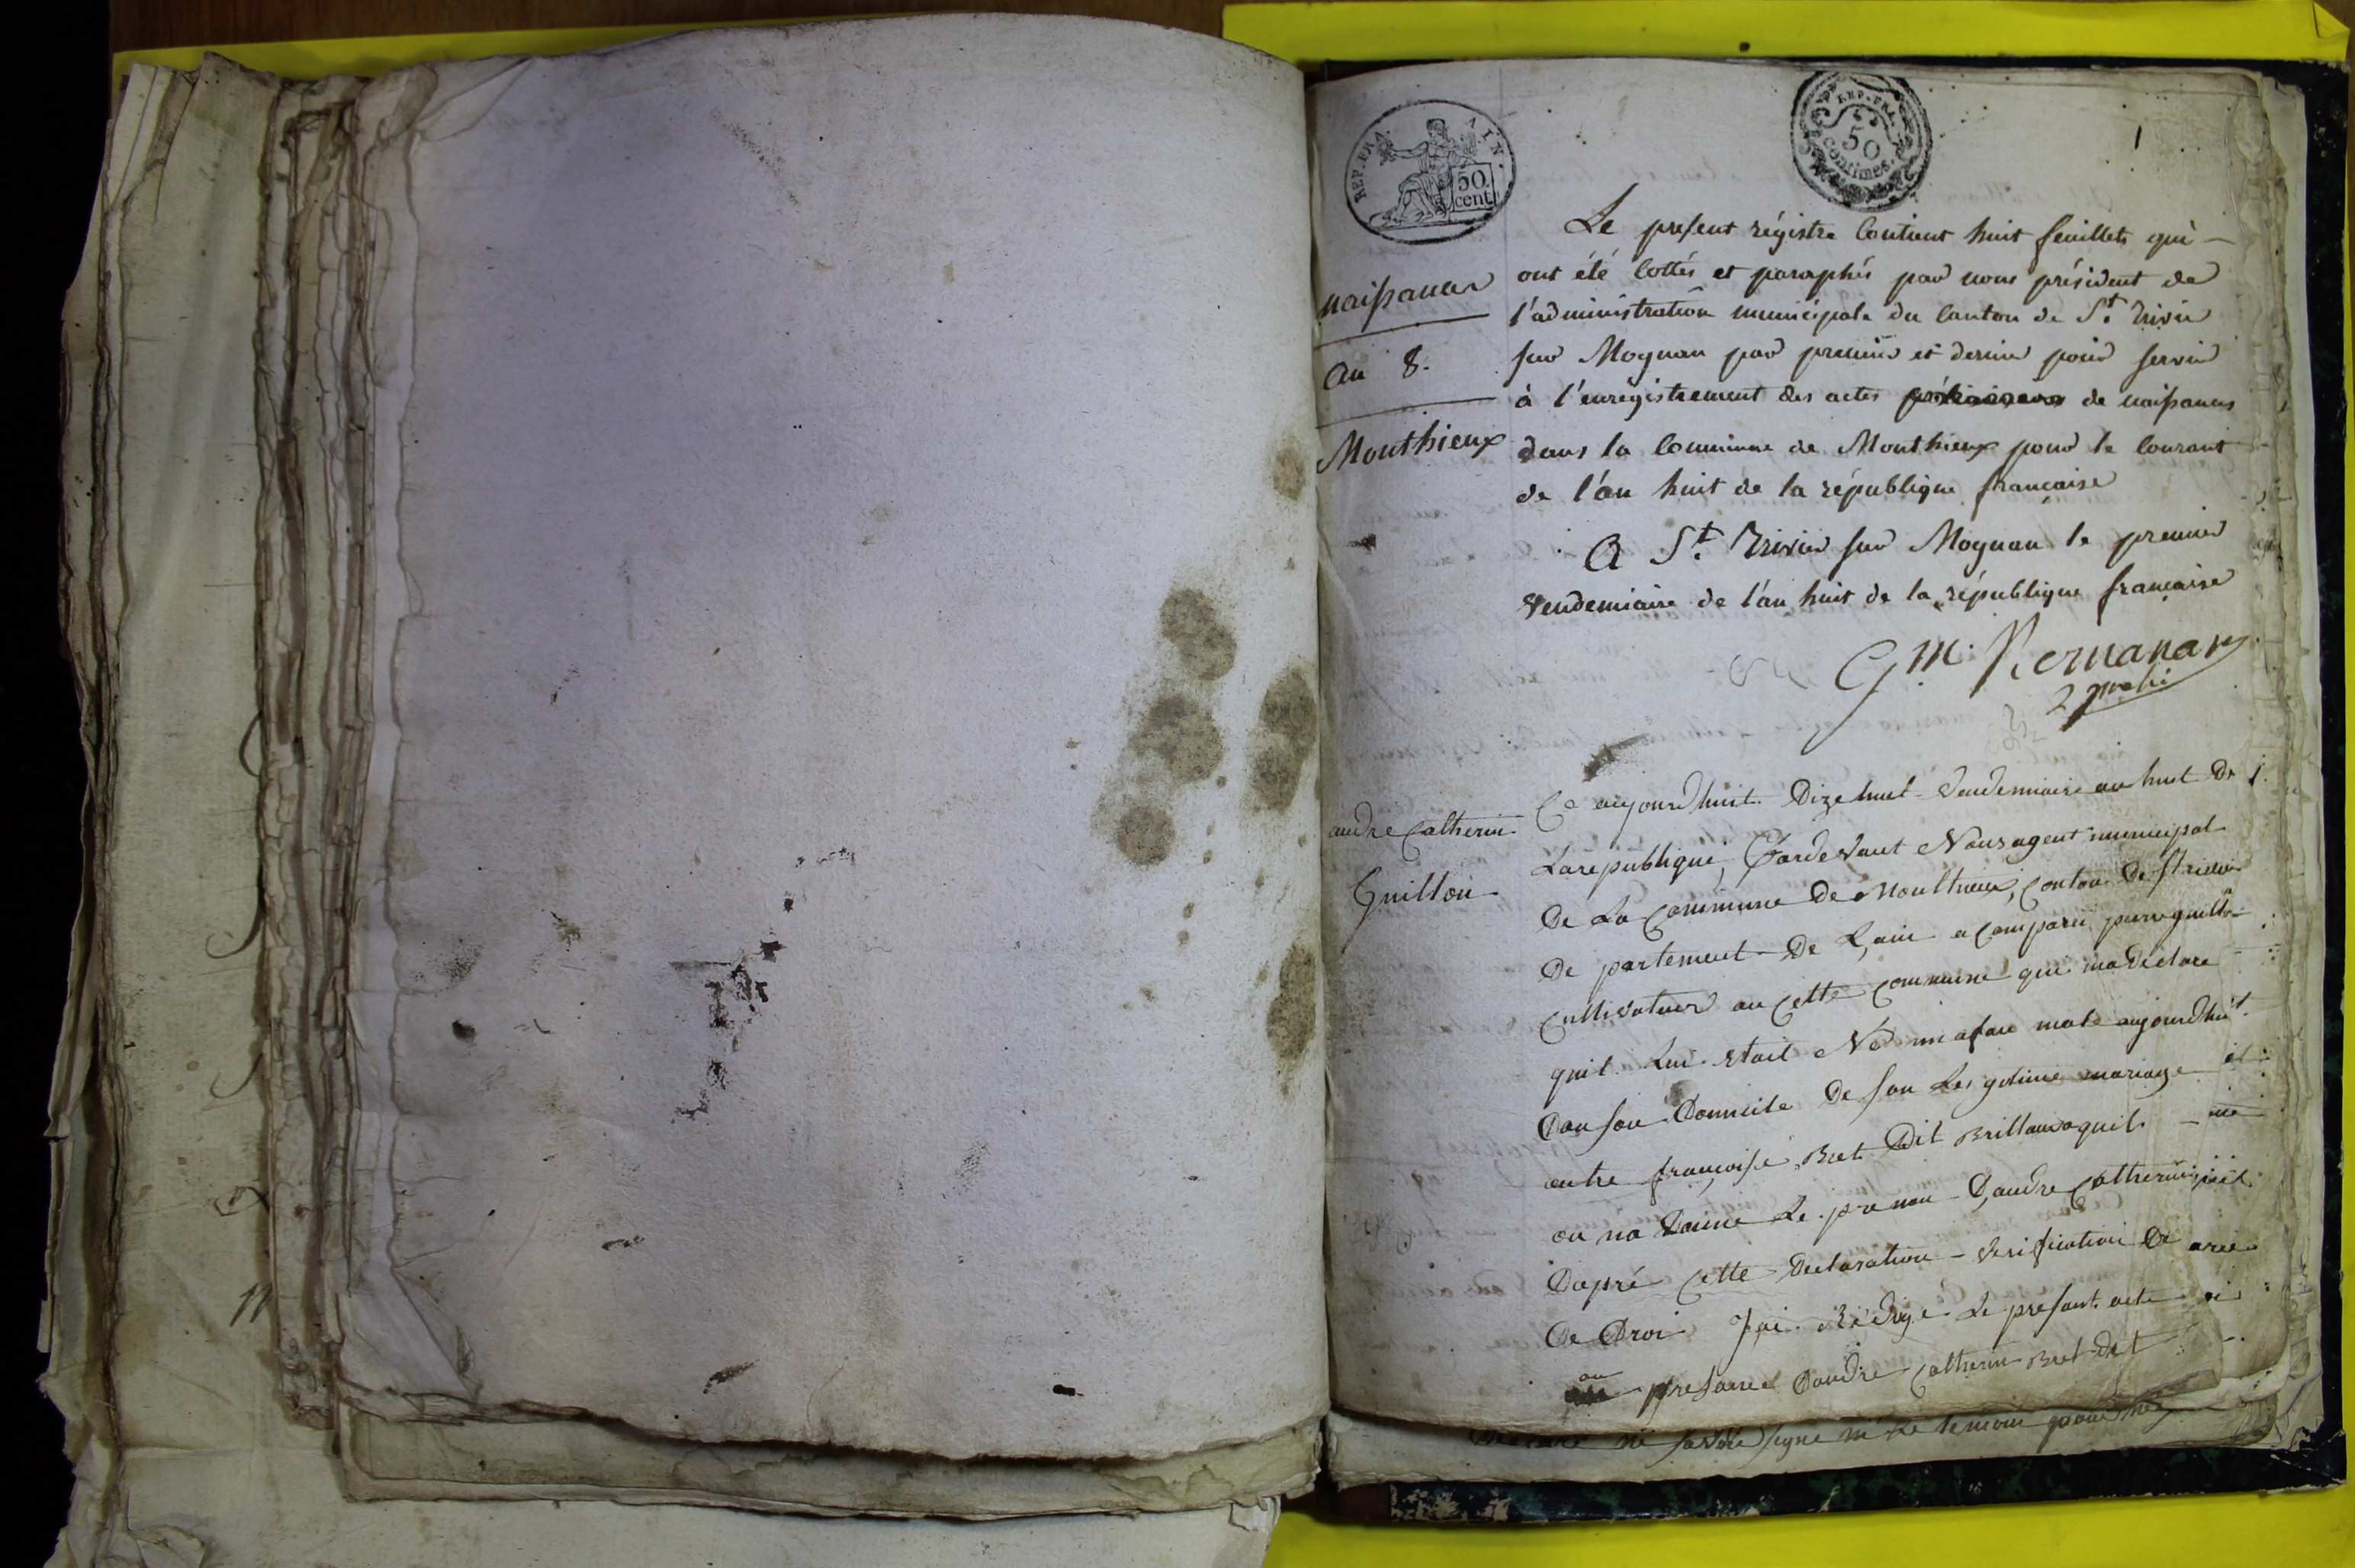 REP. FRA. AIN.
50 cent
REP. FRA.
50
centimes.
1
naissances
an 8.
Monthieux
Le présent régistre contient huit feuillets qui
ont été cottés et paraphés par nous président de
l'administration municipale du canton de St. Trivier
sur Mognan par premier et dernier pour servir
à l'enrégistrement des actes de naissances
dans la commune de Monthieux pour le courant
de l'an huit de la république française
A St. Trivier sur Mognan le premier
vendemiaire de l'an huit de la république française
andre Catherin
Guillon
Ce aujourdhuit Dize huit vendemiaire an huit De
La republique, Pardevant Nous agent municipal
De La Commune De Moultieux, Canton De
De partement De L'ain a Comparu pierre guillon
Cultivateur au Cette Commune qui ma Declare
quil Lui etait Né un afan male aujourdhuit
Dan son Domicile De son Legitime mariage
entre françoise Bret Dit Brilland aquil
on na Danne Le prenon D'andre Catherin
Dapré Cette Declaration verification
De Droi Jai Rédige Le presant acte
an presance Dandre Catherin Bret dit
ne savoir signe ni Le temoin